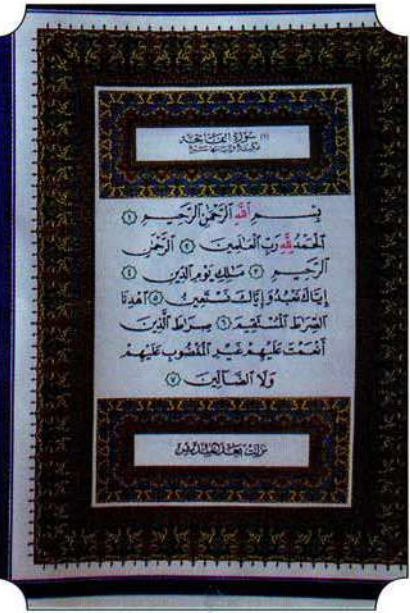 (١) سُورَةُ الفَاتِحَة
مَكِيَّة وَآيَاتُهَا سَبْع
بِسْمِ ٱللَّهِ ٱلرَّحْمَٰنِ ٱلرَّحِيمِ ١
ٱلْحَمْدُ لِلَّهِ رَبِّ ٱلْعَٰلَمِينَ ٢ ٱلرَّحْمَٰنِ
ٱلرَّحِيمِ ٣ مَٰلِكِ يَوْمِ ٱلدِّينِ ٤
إِيَّاكَ نَعْبُدُ وَإِيَّاكَ نَسْتَعِينُ ٥ ٱهْدِنَا
ٱلصِّرَٰطَ ٱلْمُسْتَقِيمَ ٦ صِرَٰطَ ٱلَّذِينَ
أَنْعَمْتَ عَلَيْهِمْ غَيْرِ ٱلْمَغْضُوبِ عَلَيْهِمْ
وَلَا ٱلضَّآلِّينَ ٧
نزلت بعد المدثر